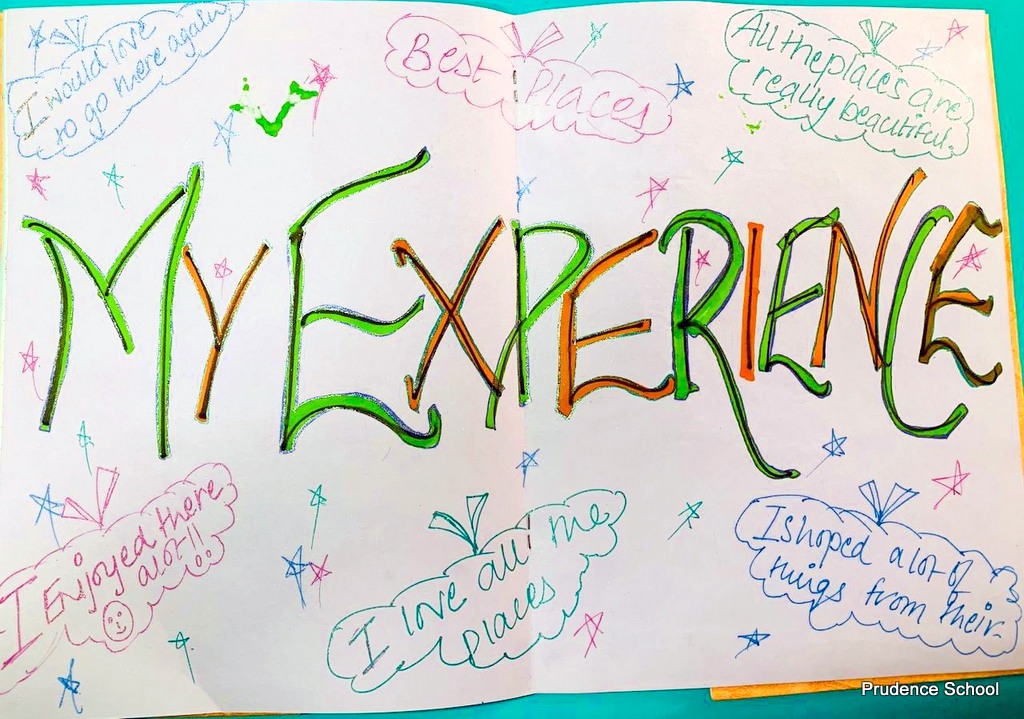 I would love
to go there again
Best Places
All the places are
really beautiful.
MY EXPERIENCE
I Enjoyed there
alot!!
I love all me
places
I shoped a lot of
thigs from their.
Prudence School